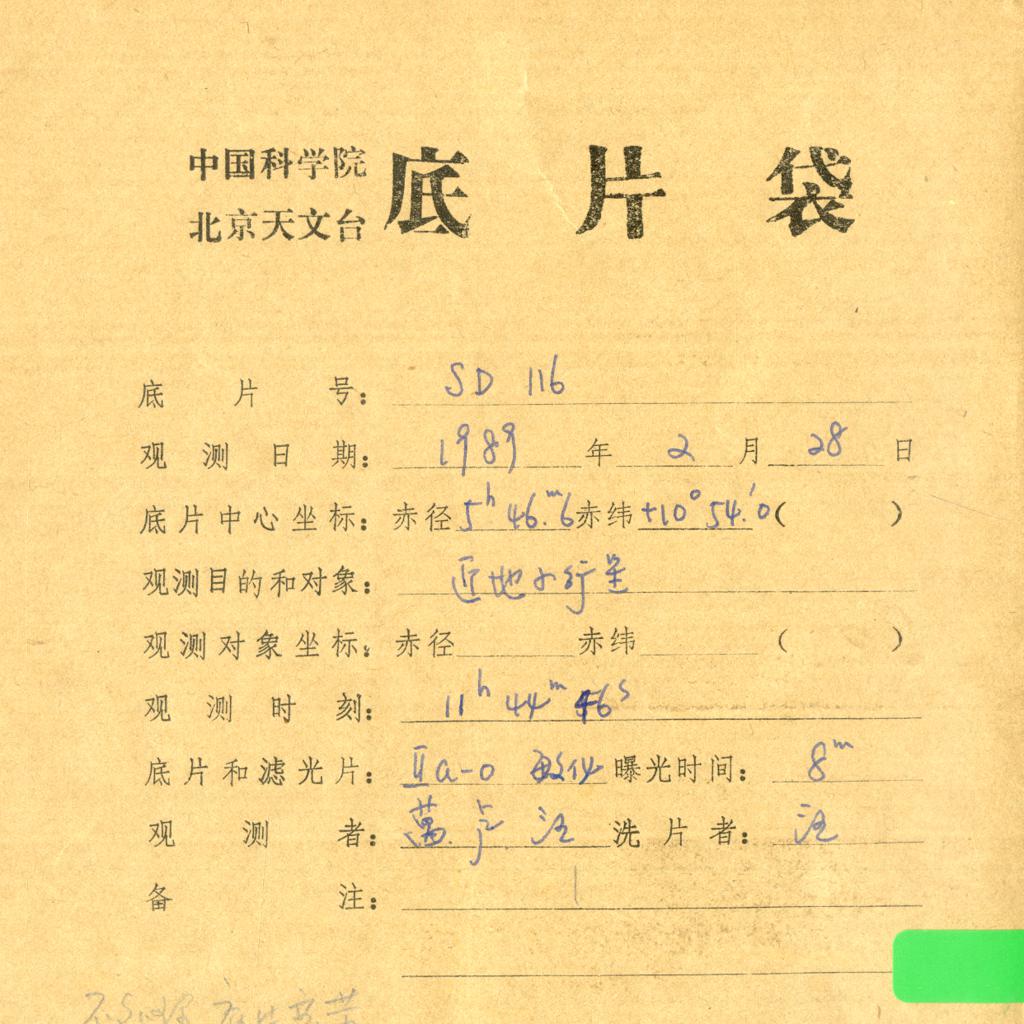 中国科学院
北京天文台
底片袋
底片号: SD 116
观测日期: 1989年2月28日
底片中心坐标: 赤径5ʰ46.ᵐ6赤纬+10°54.′0( )
观测目的和对象: 近地小行星
观测对象坐标: 赤径 赤纬 ( )
观测时刻: 11ʰ44ᵐ46ˢ
底片和滤光片: Ⅱa-O 敏化 曝光时间: 8ᵐ
观测者: 萬. 卢. 汪 洗片者: 汪
备注: